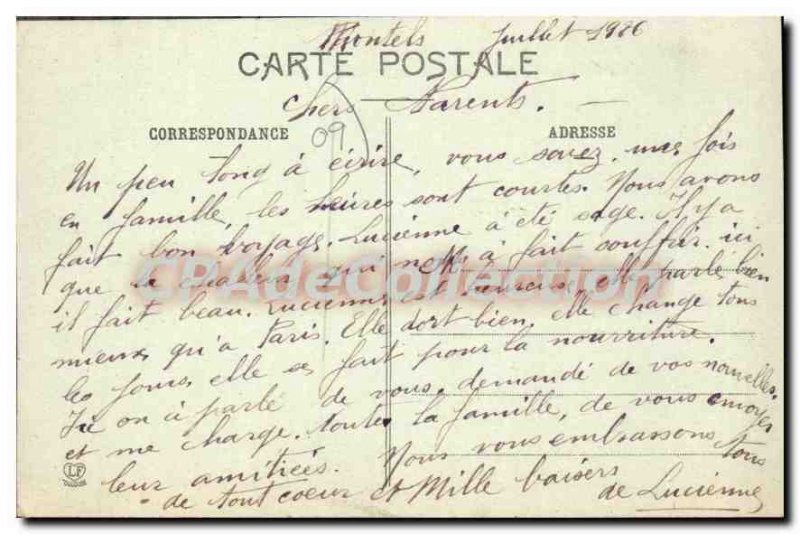 Montels Juillet 1926
CARTE POSTALE
Chers Parents.
09
CORRESPONDANCE ADRESSE
Un peu long à écrire, vous savez, une fois
en famille, les heures sont courtes. Nous avons
fait bon voyage. Lucienne à été sage. Il y a
que la chaleur qui nous à fait souffrir. ici
il fait beau. Lucienne est heureuse, elle parle bien
mieux qu'a Paris. Elle dort bien. elle change tous
les jours, elle se fait pour la nourriture.
Ici on à parlé de vous. demandé de vos nouvelles.
et me charge. toutes la famille, de vous envoyer
leur amitiées. Nous vous embrassons tous
de tout coeur et Mille baisers
de Lucienne
LF
CPAdeCollection